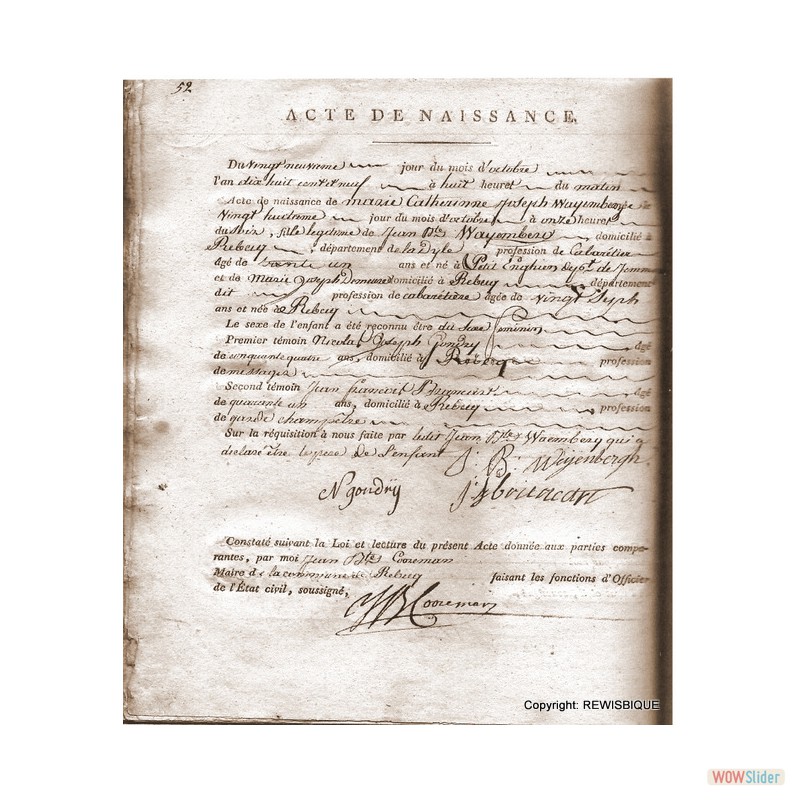 52
ACTE DE NAISSANCE.
Du vingt neuvieme jour du mois d'octobre du
l'an dix huit cent et neuf à huit heures du matin
Acte de naissance de marie Catherinne Joseph Wayembergh
Vingt huitieme jour du mois d'octobre à onze heures
du Soir, fille legitime de Jean Bte Wayemberg domicilié à
Rebecq, département de la dyle profession de Cabaretier
âgé de trente un ans et né à Petit Enghien Dept de Jemm
et de Marie Joseph domicilié à Rebecq département
dit profession de cabaretière agée de vingt Seph
ans et née à Rebecq
Le sexe de l'enfant a été reconnu être du Sexe feminin
Premier témoin Nicolas Joseph Gondry âgé
de cinquante quatre ans, domicilié à Rebecq profession
de messager
Second témoin Jean francois âgé
de quarante un ans, domicilié à Rebecq profession
de garde champêtre
Sur la réquisition à nous faite par ledit Jean Bte Waemberg qui a
declaré être le pere de l'enfant J. B. Wayenbergh
N gondrÿ
Constaté suivant la Loi et lecture du présent Acte donnée aux parties compa-
rantes, par moi Jean Bte Cooreman
Maire de la commune de Rebecq faisant les fonctions d'Officier
de l'État civil, soussigné,
JB Cooreman
Copyright: REWISBIQUE
WOWSlider